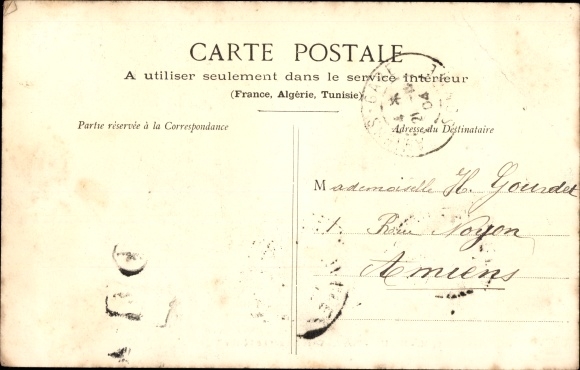 CARTE POSTALE
A utiliser seulement dans le service intérieur
(France, Algérie, Tunisie)
Partie réservée à la Correspondance
Adresse du Destinataire
Mademoiselle H. Gourdet
1 Rue Noyon
Amiens